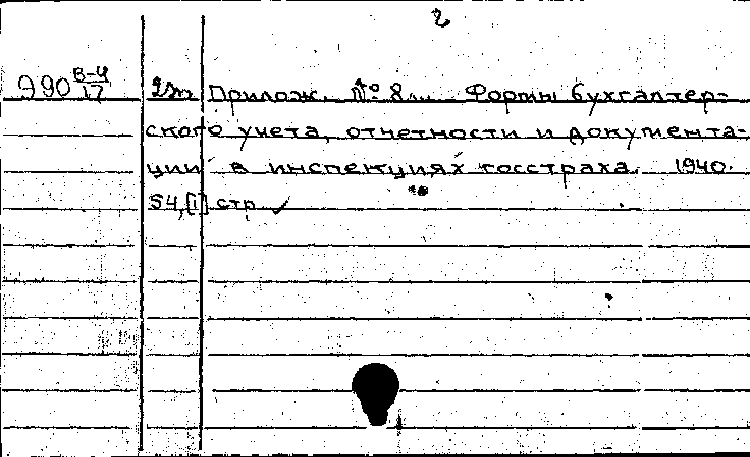 2
Э90 В-4/17 Прилож. № 8... Формы бухгалтер-
ского учета, отчетности и документа-
ции в инспекциях госстраха. 1940.
54,[1] стр